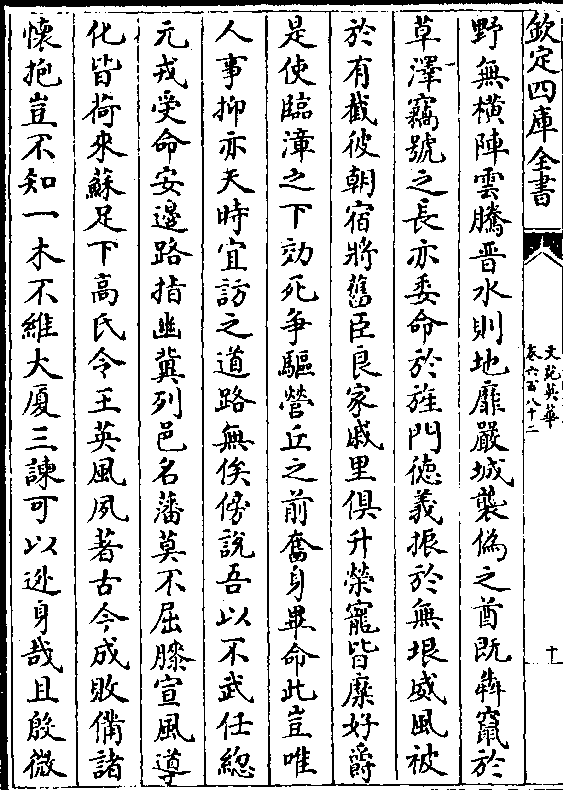 欽定四庫全書
文苑英華
卷六百八十二
十
野無橫陣雲騰晋水則地靡嚴城襲偽之酋既犇竄於
草澤竊號之長亦委命於旌門徳義振於無垠威風被
於有截彼朝宿將舊臣良家戚里俱升榮寵皆縻好爵
是使臨漳之下効死争驅營丘之前奮身畢命此豈唯
人事抑亦天時宜訪之道路無俟傍説吾以不武任総
元戎受命安邊路指幽冀列邑名藩莫不屈膝宣風導
化皆荷來蘇足下高氏令王英風夙著古今成敗備諸
懷抱豈不知一木不維大厦三諫可以逃身哉且殷微